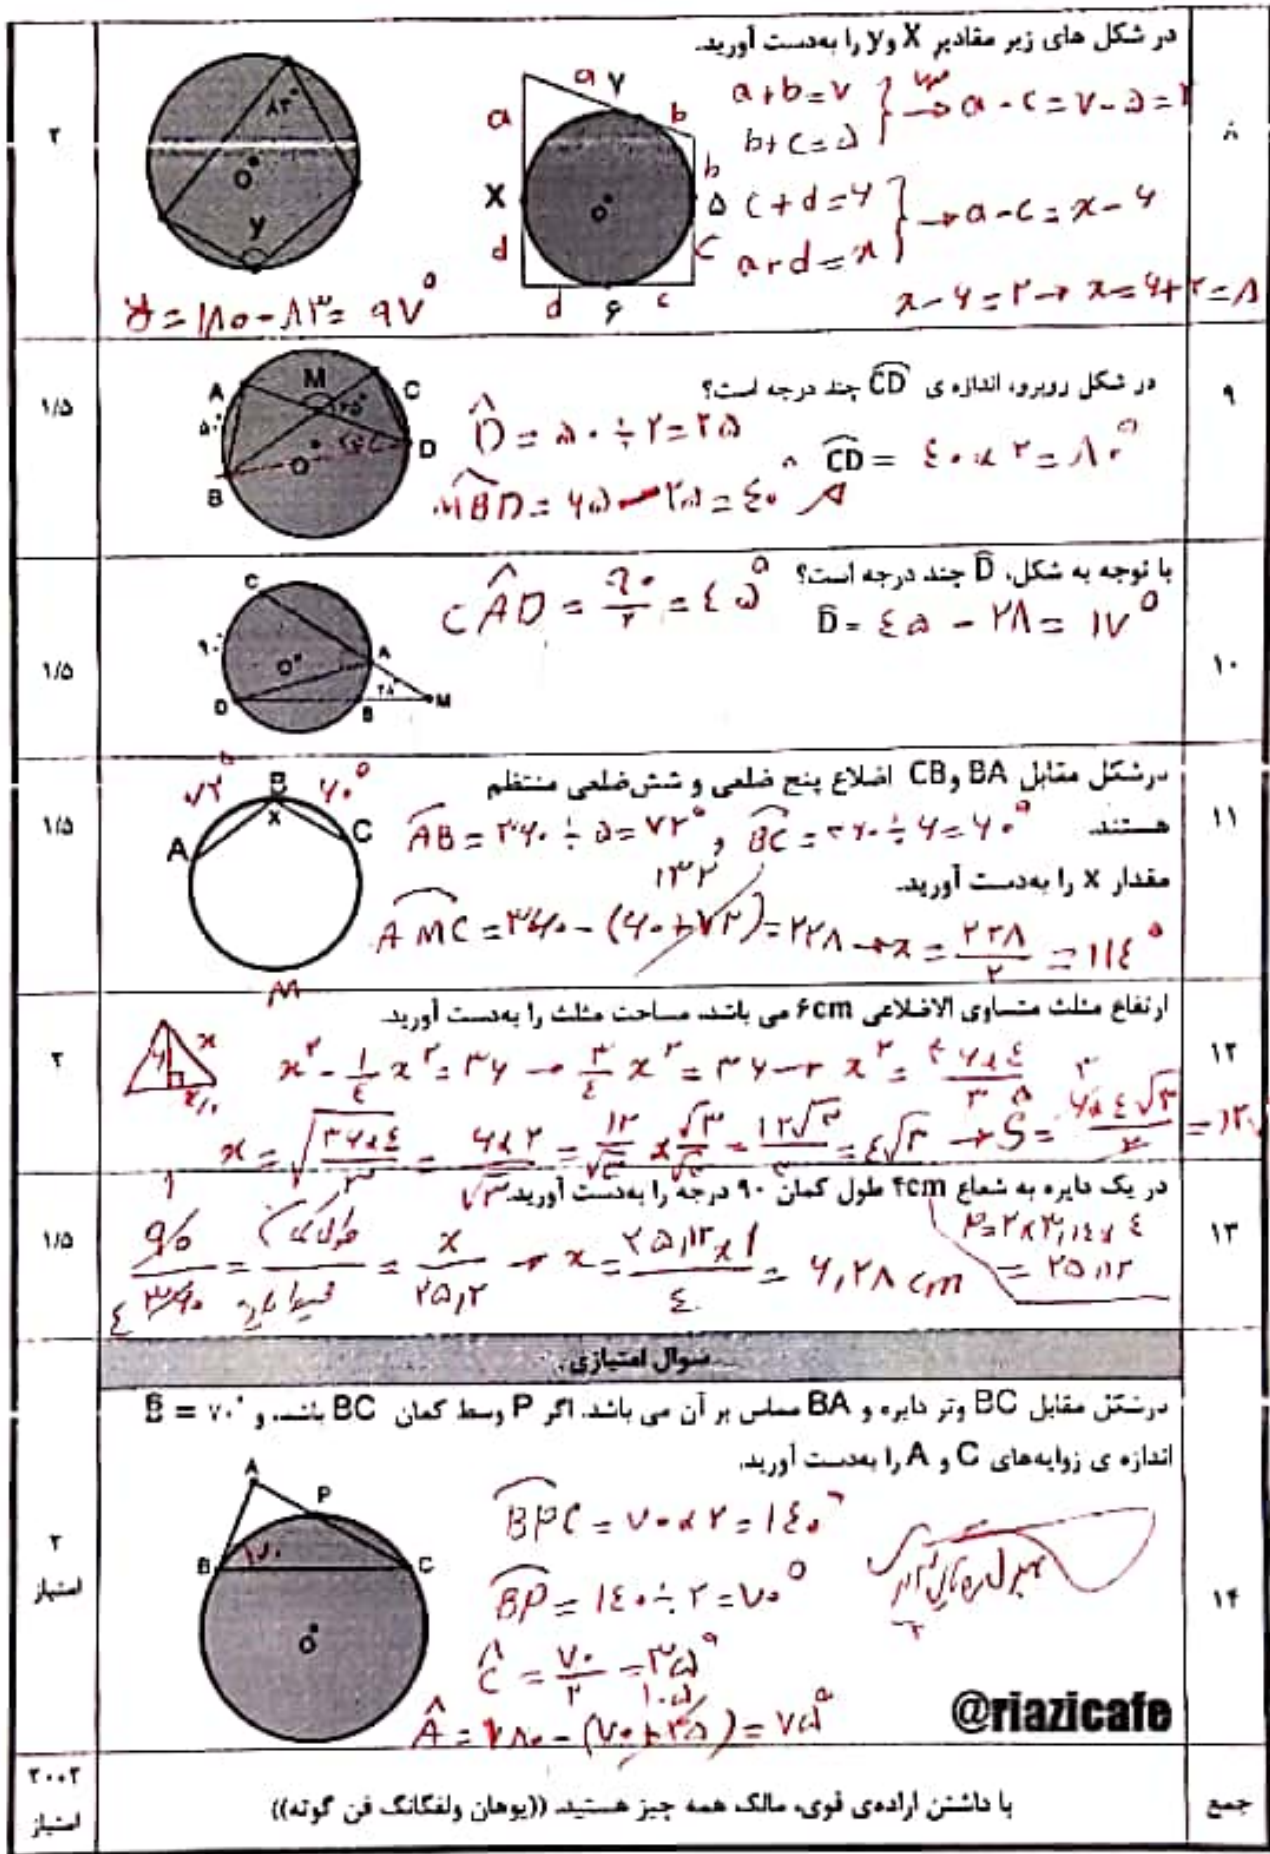 در شکل های زیر مقادیر X و y را به‌دست آورید.
۸
۲
۸۳°
O
y
y = ۱۸۰ - ۸۳ = ۹۷°
a ۷ b
a
X
d
b
۵
c
d ۶ c
o
a + b = ۷
b + c = ۵
→ a - c = ۷ - ۵ = ۲
c + d = ۶
a + d = x
→ a - c = x - ۶
x - ۶ = ۲ → x = ۶ + ۲ = ۸
در شکل روبرو، اندازه ی CD چند درجه است؟
۹
۱/۵
A M C
۵۰°
B O D
D = ۵۰ ÷ ۲ = ۲۵
CD = ۴۰ × ۲ = ۸۰°
MBD = ۶۵ - ۲۵ = ۴۰°
با توجه به شکل، D چند درجه است؟
۱۰
۱/۵
C
۹۰°
O A
۲۸°
D B M
CAD = ۹۰/۲ = ۴۵°
D = ۴۵ - ۲۸ = ۱۷°
درشکل مقابل BA و CB اضلاع پنج ضلعی و شش‌ضلعی منتظم
هستند.
مقدار x را به‌دست آورید.
۱۱
۱/۵
۷۲° B ۶۰°
x
A C
M
AB = ۳۶۰ ÷ ۵ = ۷۲° , BC = ۳۶۰ ÷ ۶ = ۶۰°
۱۳۲
AMC = ۳۶۰ - (۶۰ + ۷۲) = ۲۲۸ → x = ۲۲۸/۲ = ۱۱۴°
ارتفاع مثلث متساوی الاضلاعی ۶cm می باشد، مساحت مثلث را به‌دست آورید.
۱۲
۲
۶ x
x² - ۱/۴ x² = ۳۶ → ۳/۴ x² = ۳۶ → x² = ۳۶×۴/۳
x = √۳۶×۴/۳ = ۶×۲/√۳ = ۱۲/√۳ × √۳/√۳ = ۱۲√۳/۳ = ۴√۳ → S = ۶×۴√۳/۲ = ۱۲√
در یک دایره به شعاع ۴cm طول کمان ۹۰ درجه را به‌دست آورید.
۱۳
۱/۵
P = ۲×۳,۱۴×۴
= ۲۵,۱۲
۹۰/۳۶۰ = طول کمان/محیط دایره = x/۲۵,۱۲ → x = ۲۵,۱۲×۱/۴ = ۶,۲۸ cm
سوال امتیازی
درشکل مقابل BC وتر دایره و BA مماس بر آن می باشد. اگر P وسط کمان BC باشد، و B = ۷۰°
اندازه ی زوایه‌های C و A را به‌دست آورید.
۱۴
۲
امتیاز
A
P
B ۷۰ C
O
BPC = ۷۰ × ۲ = ۱۴۰°
BP = ۱۴۰ ÷ ۲ = ۷۰°
C = ۷۰/۲ = ۳۵°
۱۰۵
A = ۱۸۰ - (۷۰ + ۳۵) = ۷۵°
@riazicafe
جمع
با داشتن اراده‌ی قوی، مالک همه چیز هستید. ((یوهان ولفگانگ فن گوته))
۲۰+۲
امتیاز